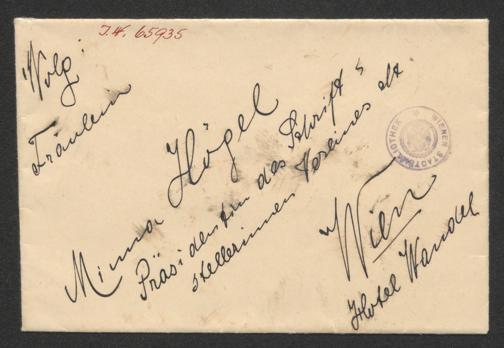 J.N. 65935
Wolg.
Fräulein
Minna Högel
Präsidentin des Schrift-
stellerinnen Vereines etc
Wien
Hotel Wandel
WIENER STADTBIBLIOTHEK